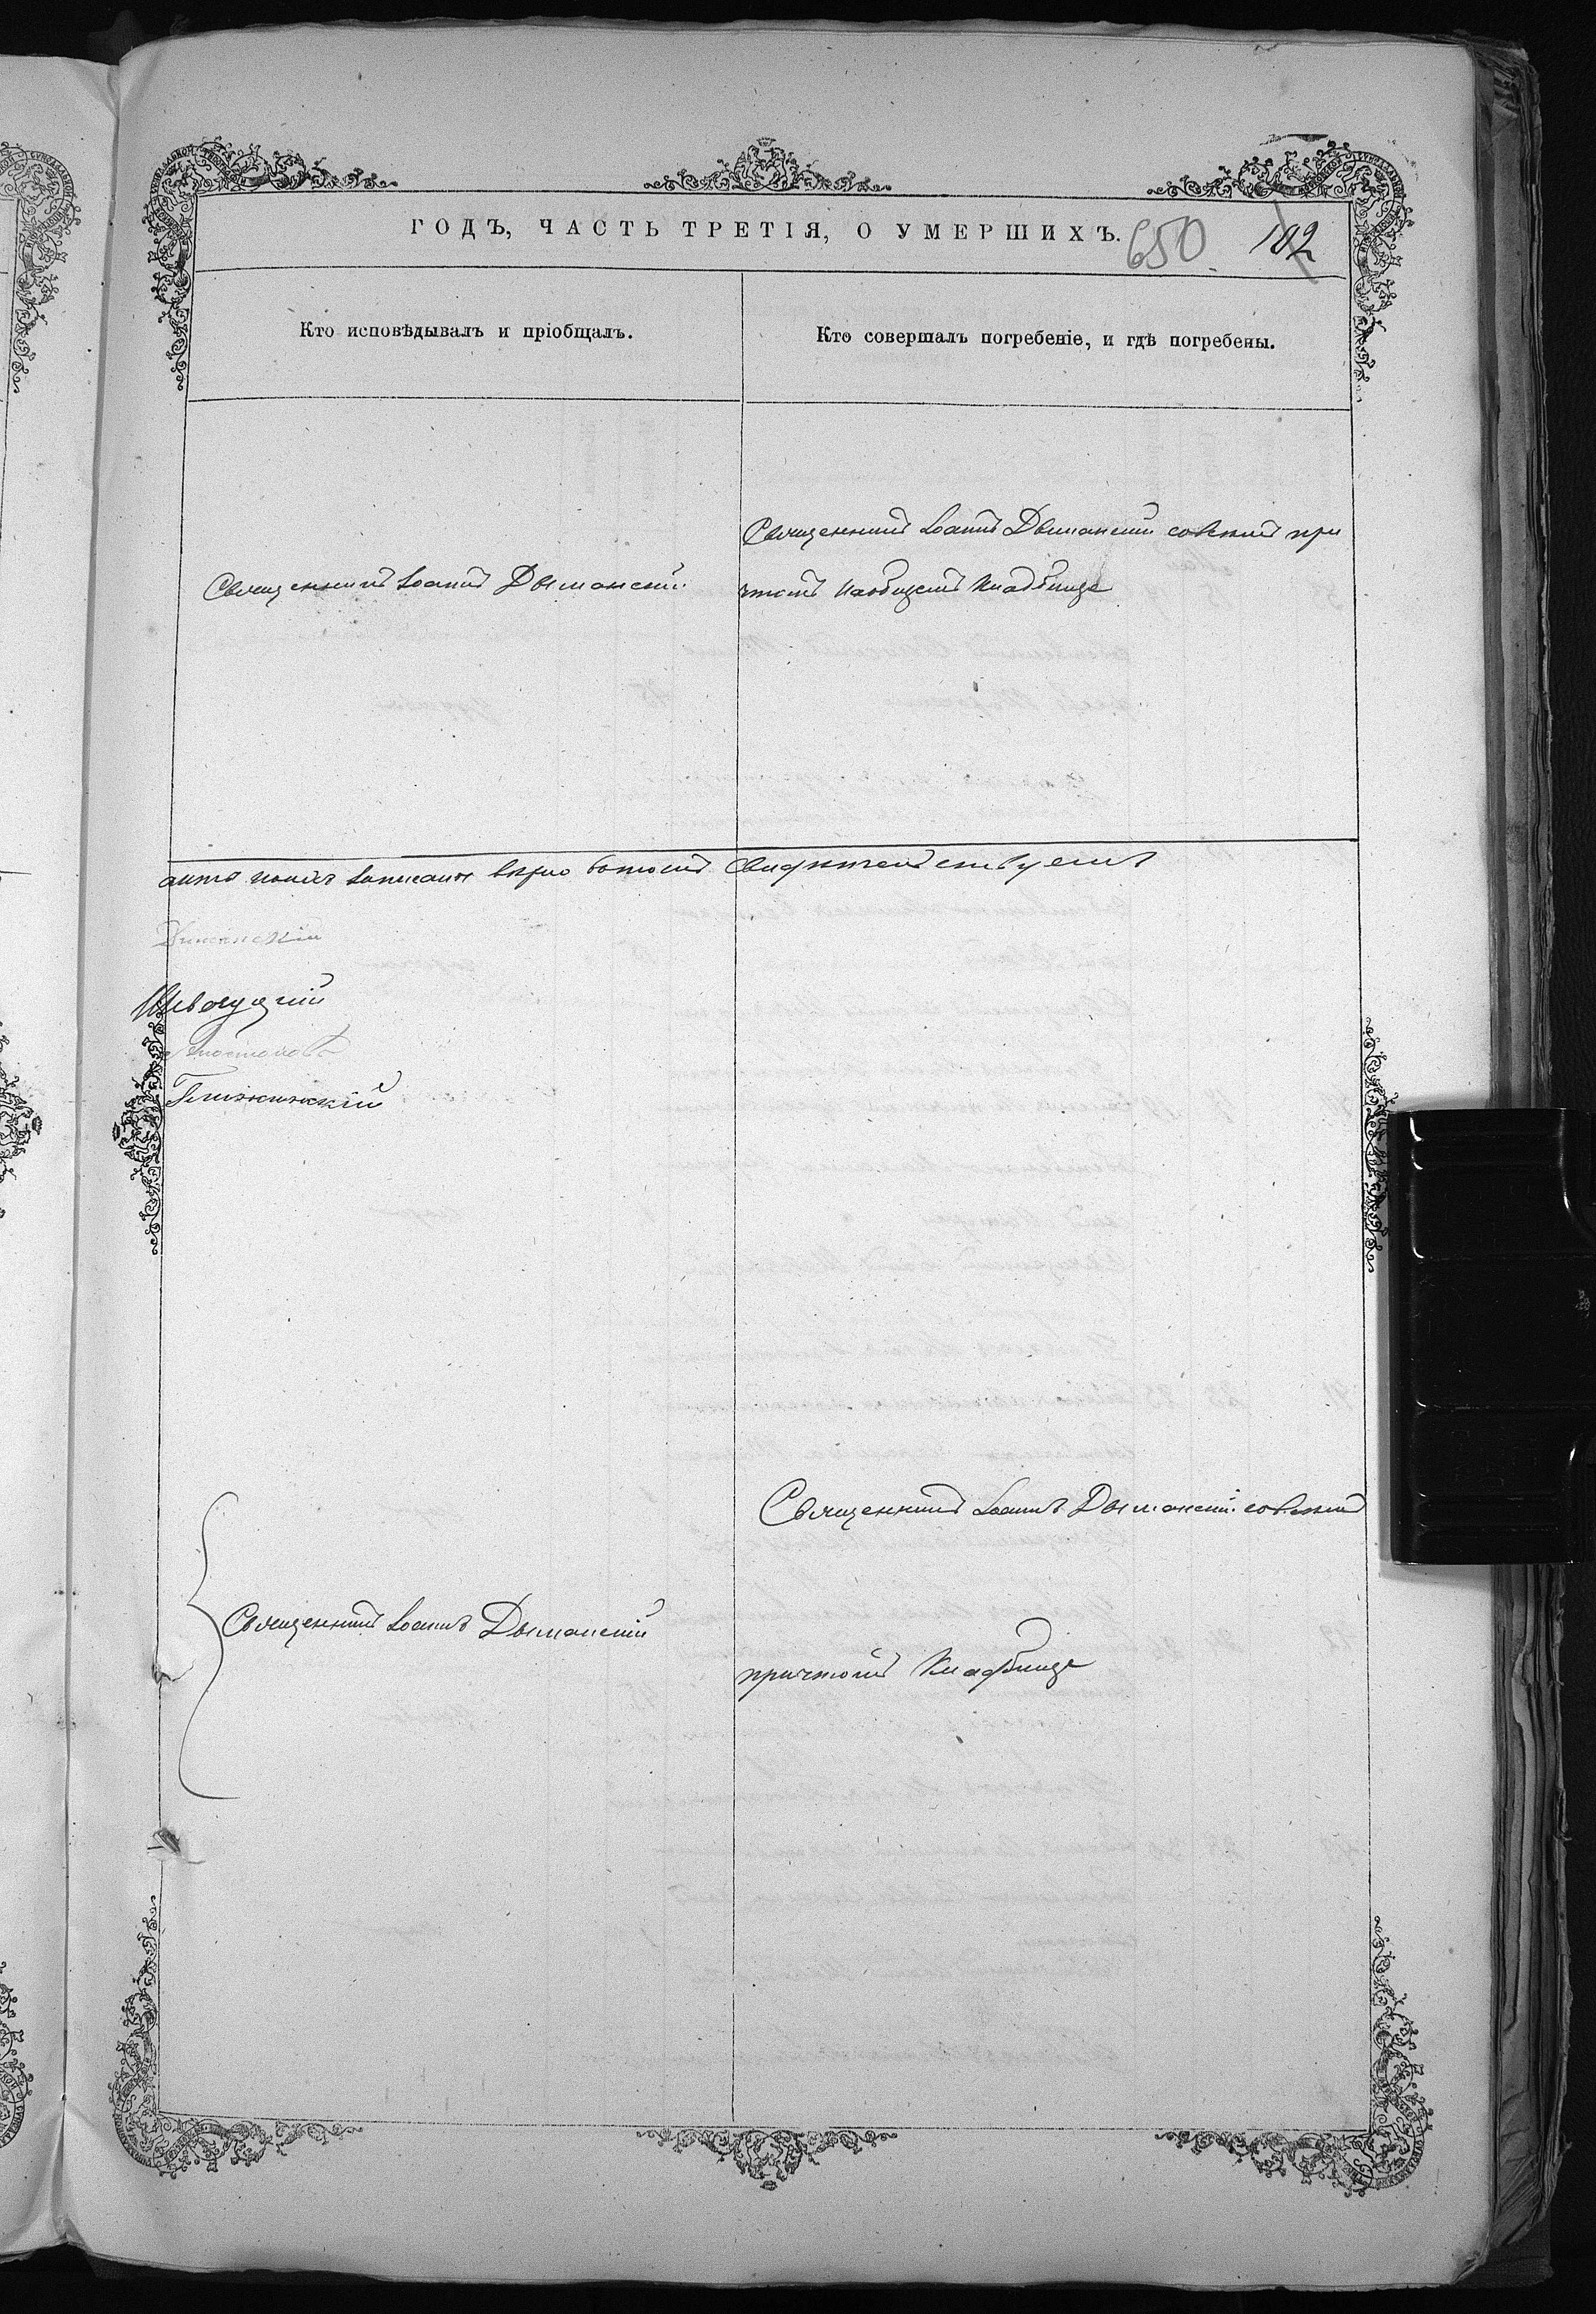 ГОДЪ, ЧАСТЬ ТРЕТІЯ, О УМЕРШИХЪ.
650
102
Кто исповѣдывалъ и пріобщалъ.
Кто совершалъ погребеніе, и гдѣ погребены.
Священникъ Іоаннъ Дыманскій
Священникъ Іоаннъ Дыманскій со всѣмъ при
чтомъ на общемъ кладбищѣ
записаны вѣрно въ томъ свидѣтельствуемъ
Дыманскій
Священникъ Іоаннъ Дыманскій
Священникъ Іоаннъ Дыманскій со всѣмъ
причтомъ кладбищѣ